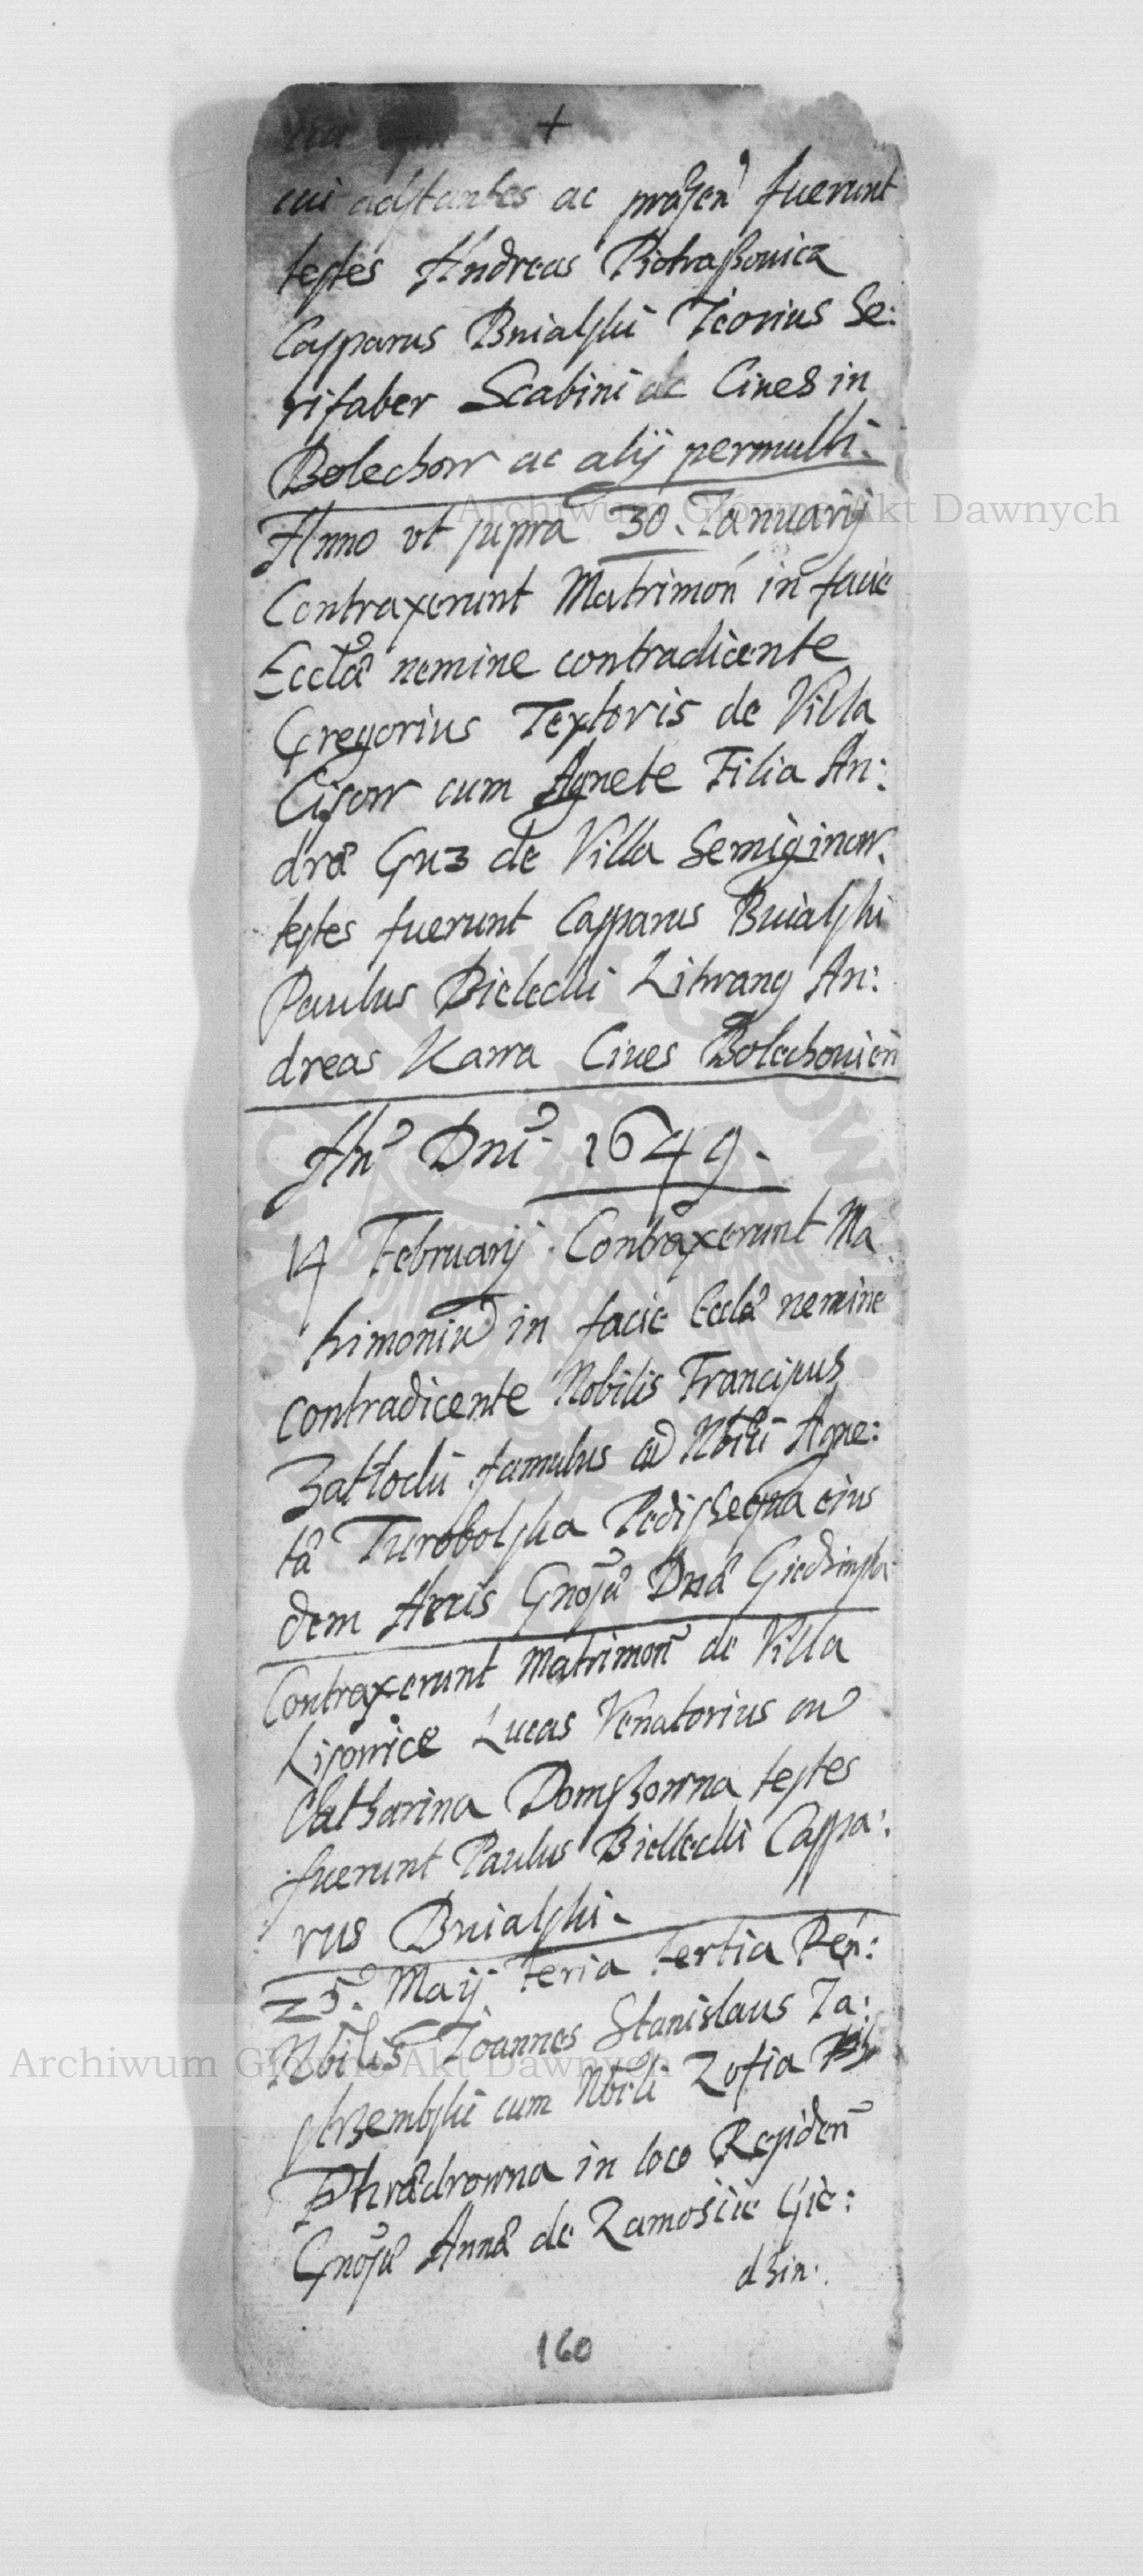 +
cui adstantes ac præsen fuerunt
testes Andreas Pietraszouicz
Casparus Bnialski Teorius Se:
rifaber Scabini ac Ciues in
Bolechow ac alij permulti.
Anno vt supra 30. Ianuarij
Contraxerunt Matrimon in facie
Ecclæ nemine contradicente
Gregorius Textoris de Villa
Cisow cum Agnete Filia An:
dræ Guz de Villa Semiginow.
testes fuerunt Casparus Bnialski
Paulus Bielecki Litwang An:
dreas Kawa Ciues Bolechouien
An Dni 1649.
14 Februarij. Contraxerunt Ma
trimoniu in facie Ecclæ nemine
contradicente Nobilis Franciscus
Zattocki famulus cu Nbili Agne:
ta Turobolska Pedissequa eius
dem Arcis Gnosæ Dnæ Giedzinska
Contraxerunt Matrimon de Villa
Lisowice Lucas Venatorius cu
Catharina Domszowna testes
fuerunt Paulus Biellecki Caspa:
rus Bnialski.
25. Maij feria tertia Pen:
Nbilis Ioannes Stanislaus Ia:
strzembski cum Nbili Zofia
Phrædrowna in loco Residen
Gnosæ Annæ de Zamoscie Gie:
dzin.
160
Archiwum Główne Akt Dawnych
Archiwum Główne Akt Dawnych